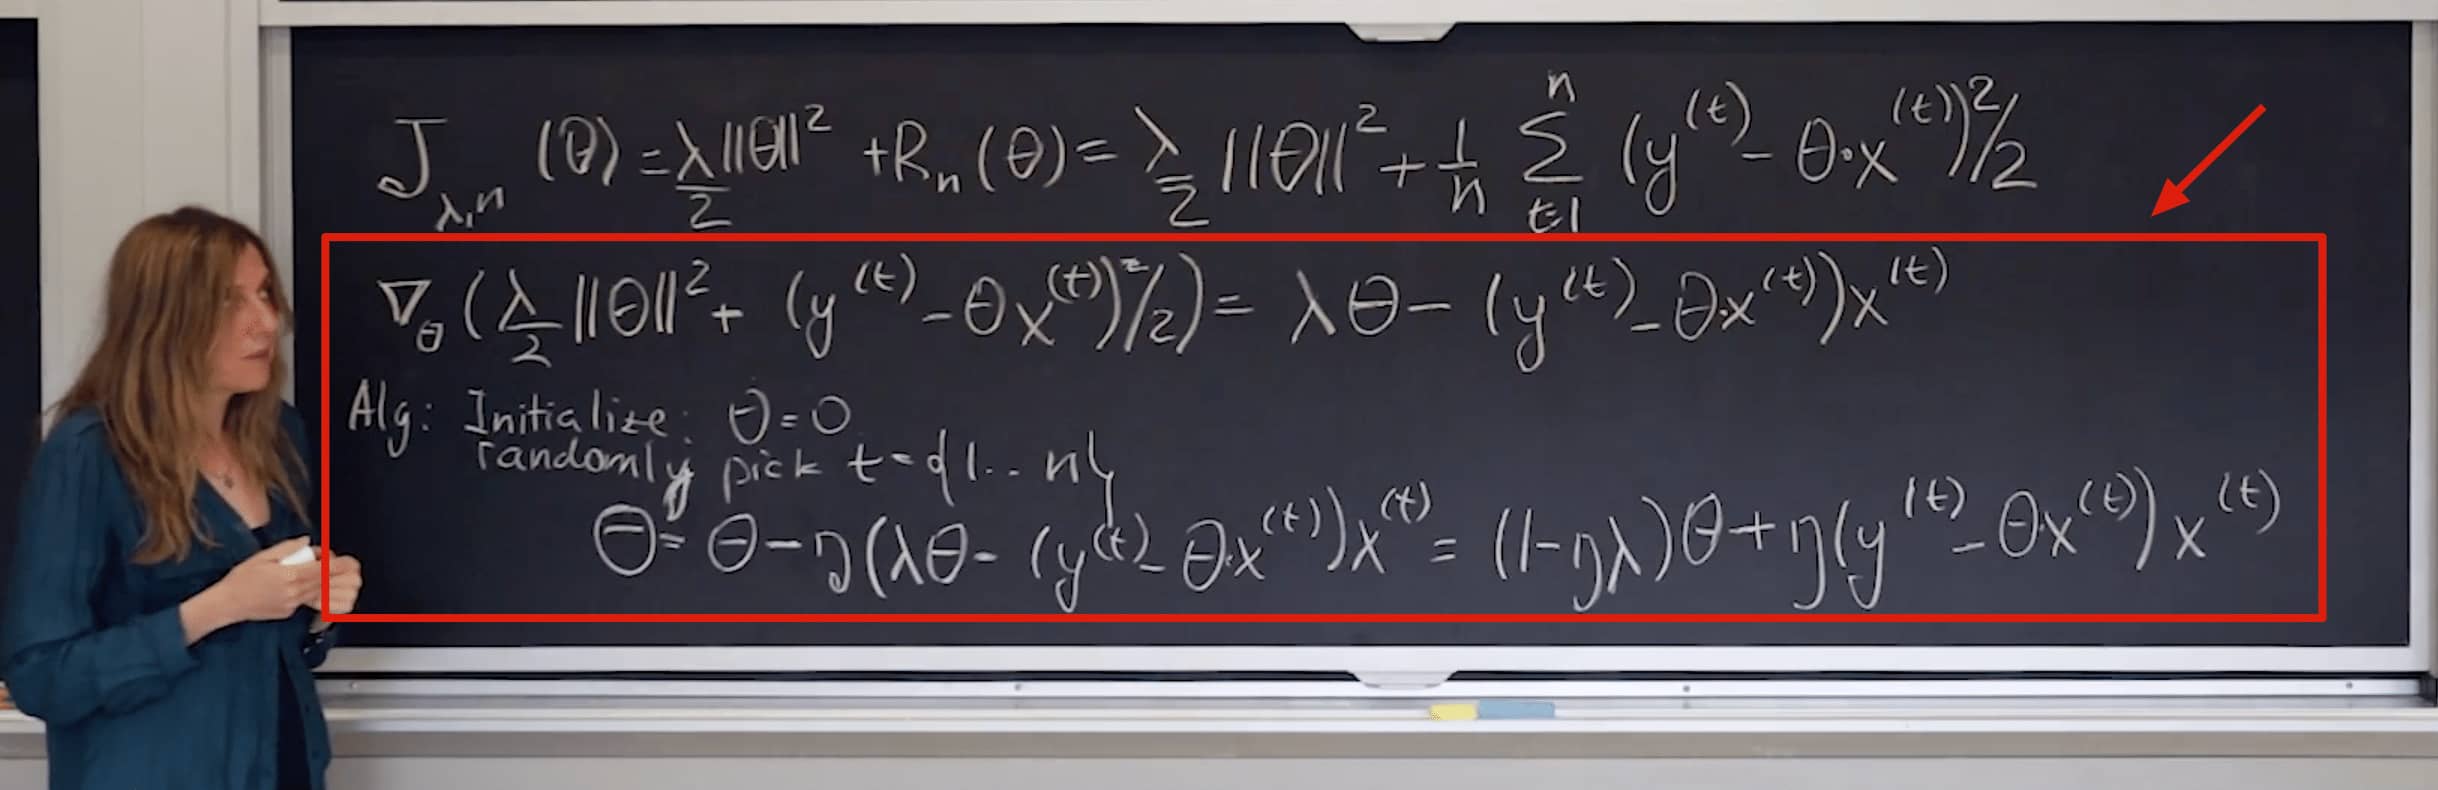 J_{λ,n} (θ) = λ/2 ||θ||² + R_n (θ) = λ/2 ||θ||² + 1/n Σ_{t=1}^{n} (y^{(t)} - θ·x^{(t)})²/2
∇_θ (λ/2 ||θ||² + (y^{(t)} - θx^{(t)})²/2) = λθ - (y^{(t)} - θ·x^{(t)})x^{(t)}
Alg: Initialize: θ=0
randomly pick t={1...n}
θ = θ - η(λθ - (y^{(t)} - θ·x^{(t)})x^{(t)} = (1-ηλ)θ + η(y^{(t)} - θ·x^{(t)})x^{(t)}